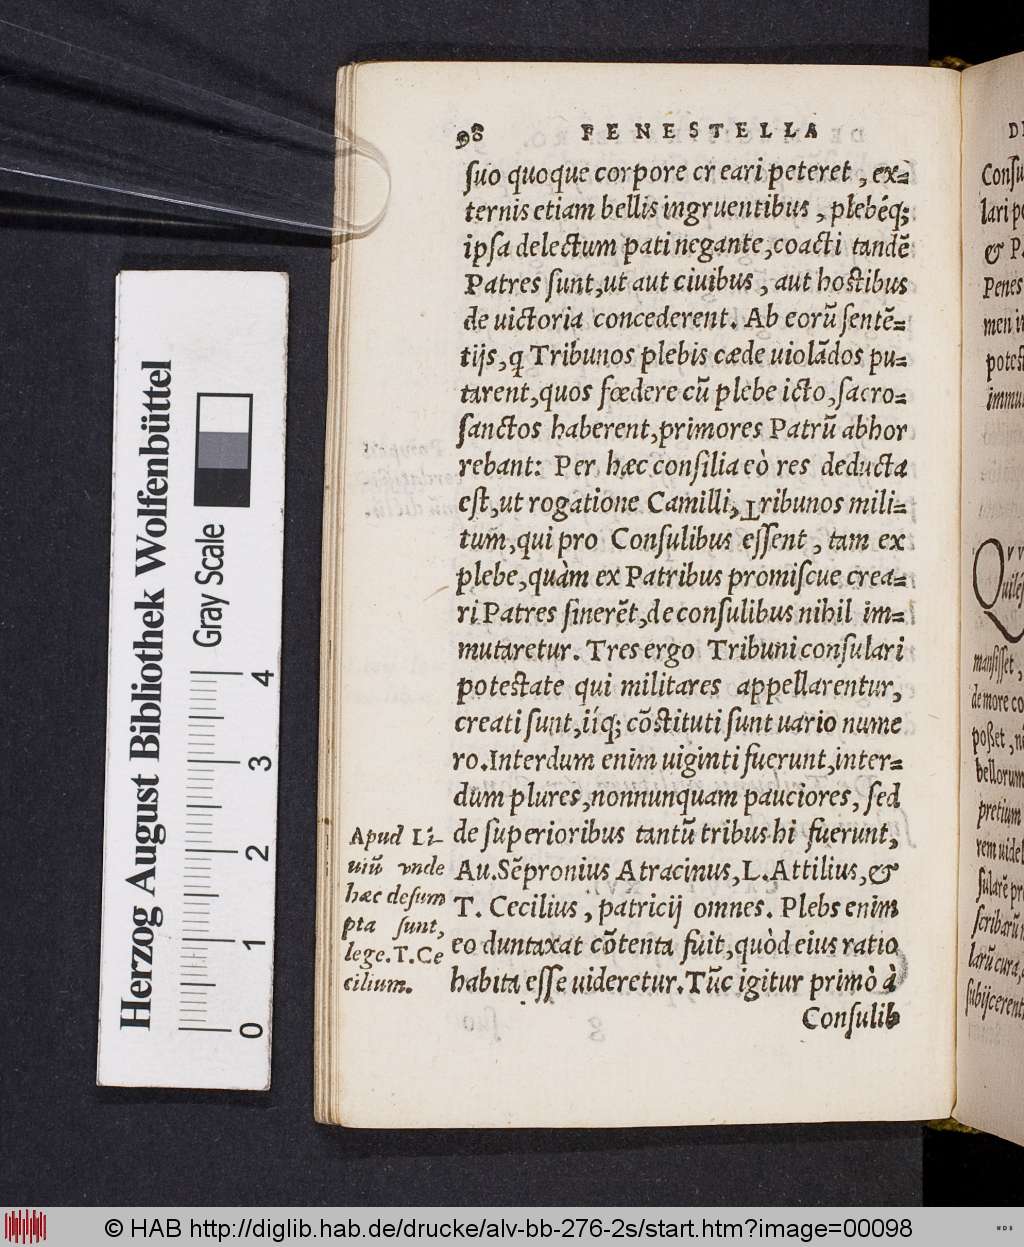 98 FENESTELLA
suo quoque corpore cr eari peteret, ex=
ternis etiam bellis ingruentibus, plebéq;
ipsa delectum pati negante, coacti tandē
Patres sunt, ut aut ciuibus, aut hostibus
de uictoria concederent. Ab eorū sentē=
tijs, q Tribunos plebis cæde uiolādos pu=
tarent, quos fœdere cū plebe icto, sacro=
sanctos haberent, primores Patrū abhor
rebant: Per hæc consilia eò res deducta
est, ut rogatione Camilli, Tribunos mili=
tum, qui pro Consulibus essent, tam ex
plebe, quàm ex Patribus promiscue crea=
ri Patres sinerēt, de consulibus nihil im=
mutaretur. Tres ergo Tribuni consulari
potestate qui militares appellarentur,
creati sunt, iíq; cōstituti sunt uario nume
ro. Interdum enim uiginti fuerunt, inter=
dum plures, nonnunquam pauciores, sed
de superioribus tantū tribus hi fuerunt,
Au. Sēpronius Atracinus, L. Attilius, &
T. Cecilius, patricij omnes. Plebs enim
eo duntaxat cōtenta fuit, quòd eius ratio
habita esse uideretur. Tūc igitur primò à
Consulib
Apud Li-
uiū vnde
hæc desum
pta sunt,
lege. T. Ce
cilium.
DE
Consu
lari po
& Pa
Penes
men in
potest
immu
QVV
Quilēs
mansisset,
de more co
posset, ni
bellorum
pretium
rem uideb
sularē pr
scribarū
larū cura,
subijcerent
Herzog August Bibliothek Wolfenbüttel
Gray Scale
0 1 2 3 4
© HAB http://diglib.hab.de/drucke/alv-bb-276-2s/start.htm?image=00098